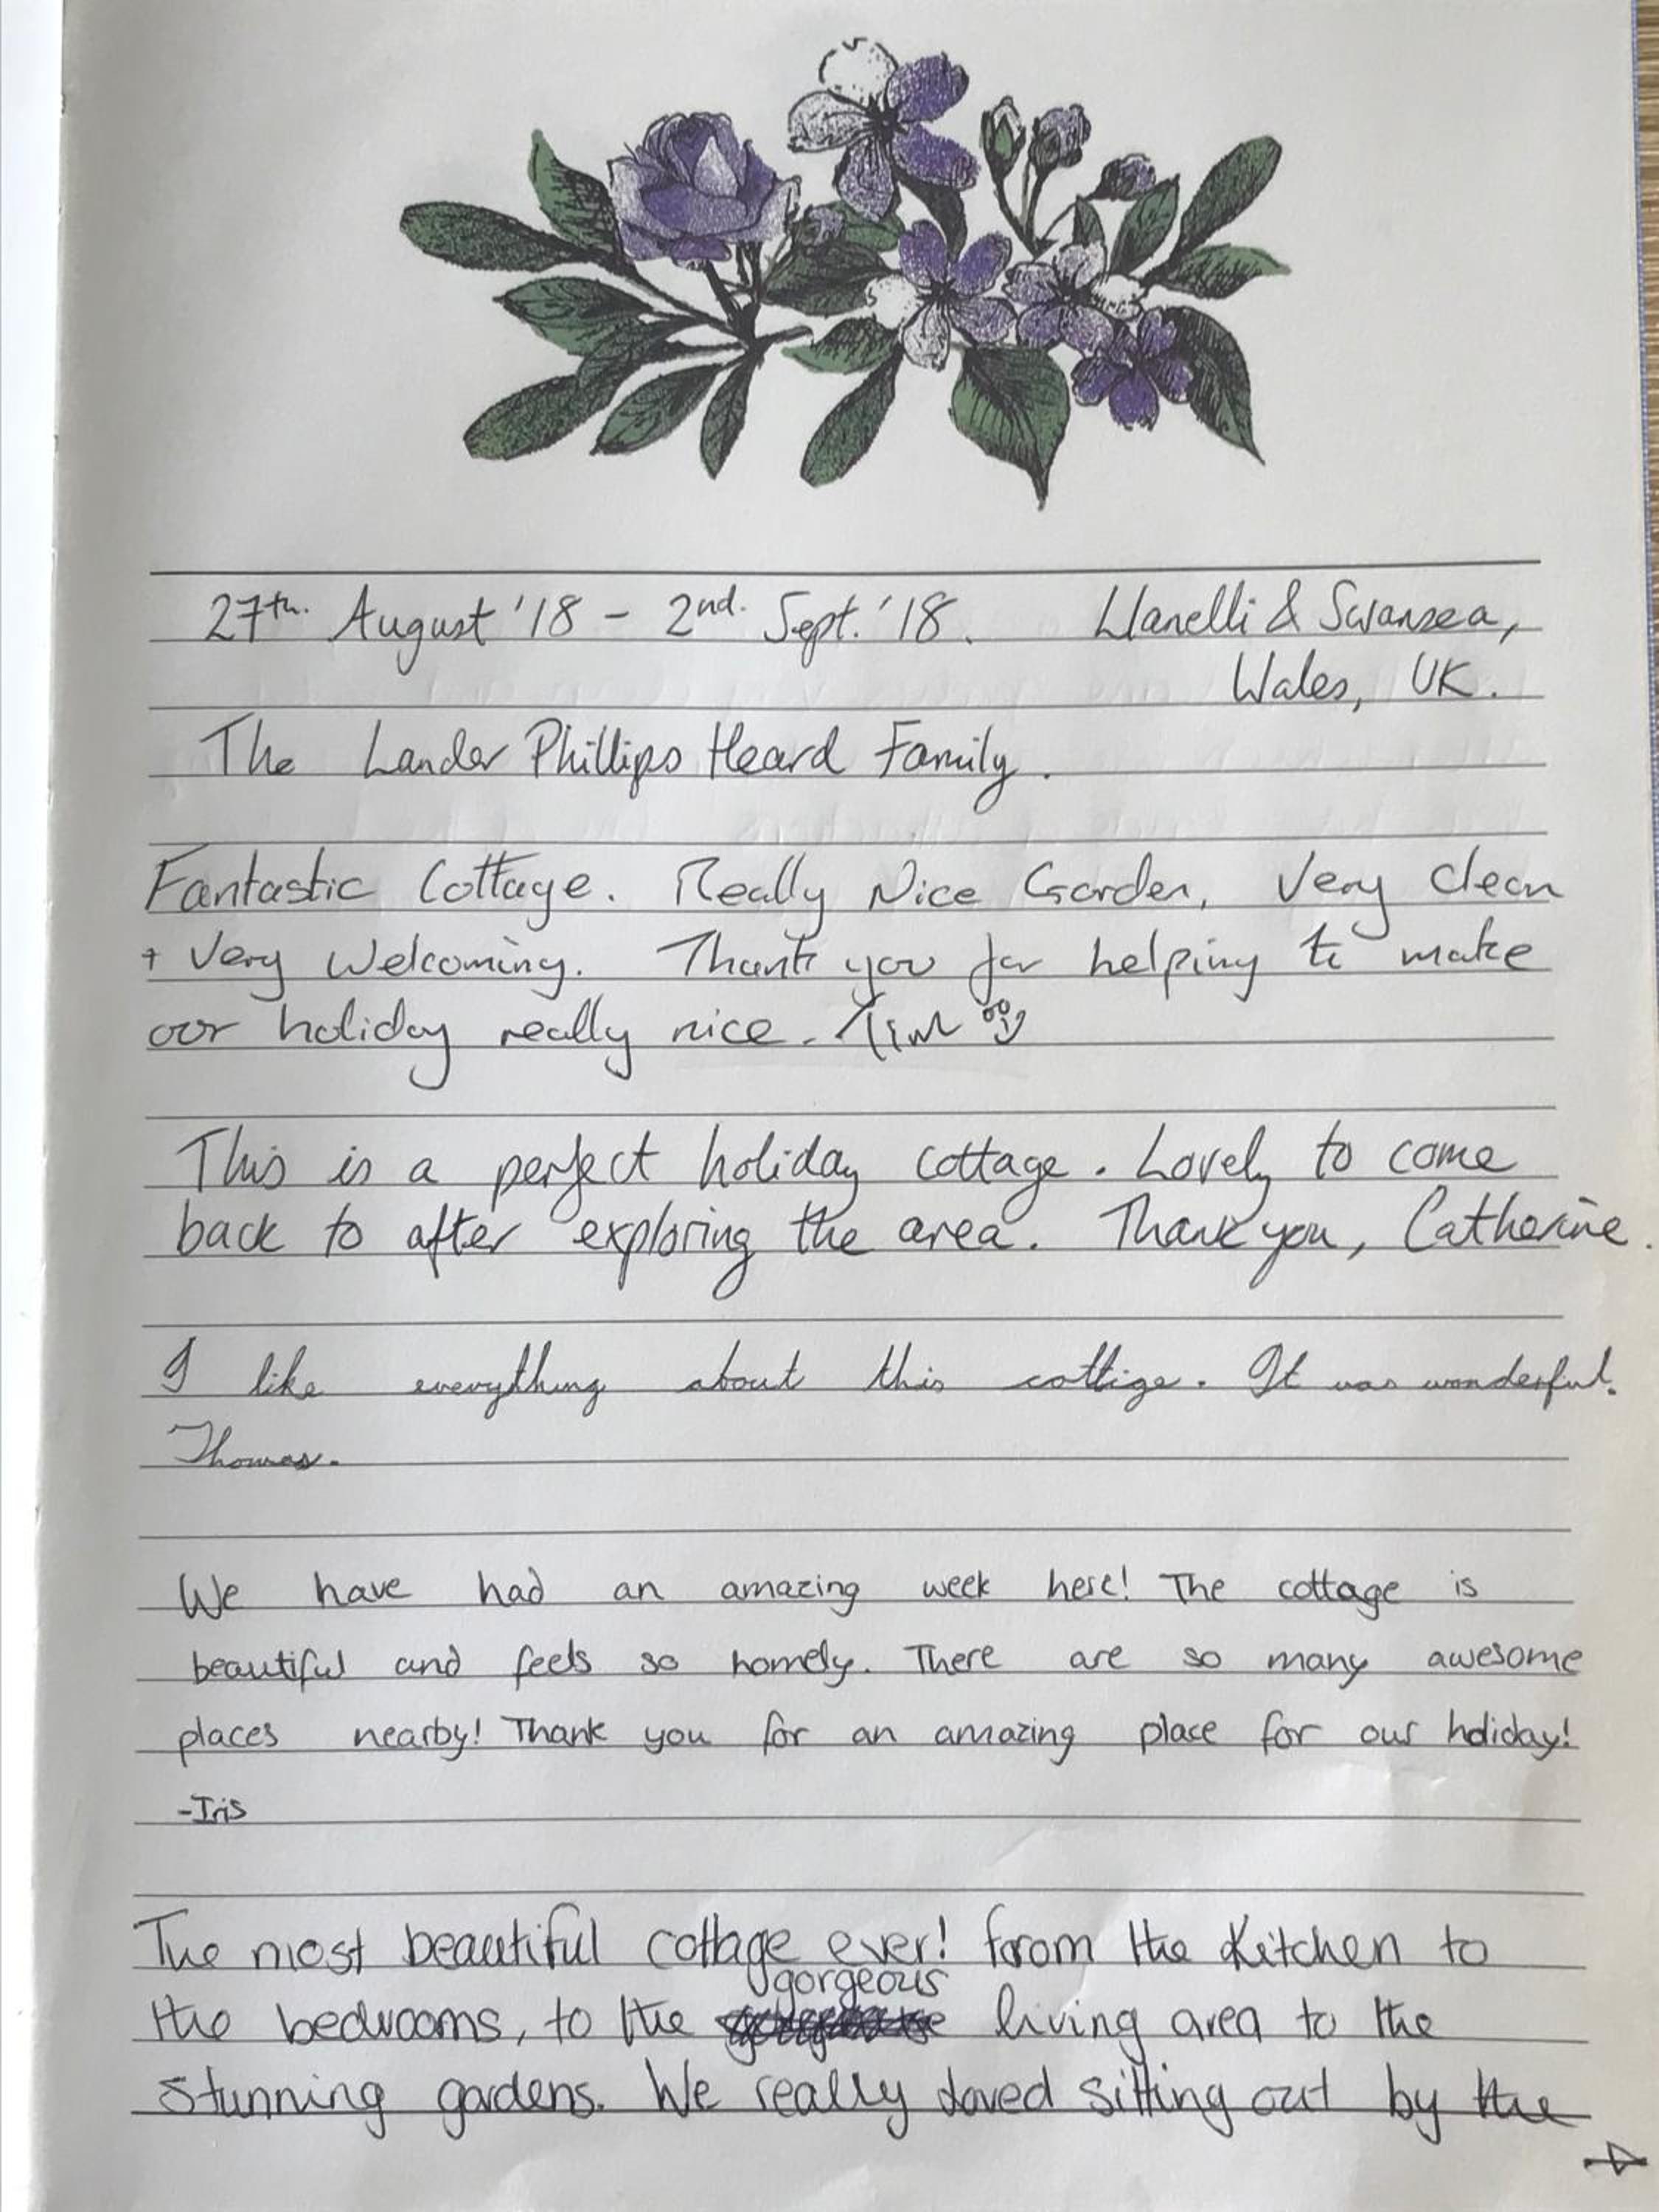 27th. August '18 - 2nd. Sept. '18. Llanelli & Swansea,
Wales, UK.
The Lander Phillips Heard Family.
Fantastic Cottage. Really Nice Garden, Very clean
+ Very Welcoming. Thank you for helping to make
our holiday really nice. Tim
This is a perfect holiday cottage. Lovely to come
back to after exploring the area. Thank you, Catherine.
I like everything about this cottige. It was wonderful.
Thomas.
We have had an amazing week here! The cottage is
beautiful and feels so homely. There are so many awesome
places nearby! Thank you for an amazing place for our holiday!
-Iris
The most beautiful cottage ever! from the kitchen to
gorgeous
the bedrooms, to the living area to the
stunning gardens. We really loved sitting out by the